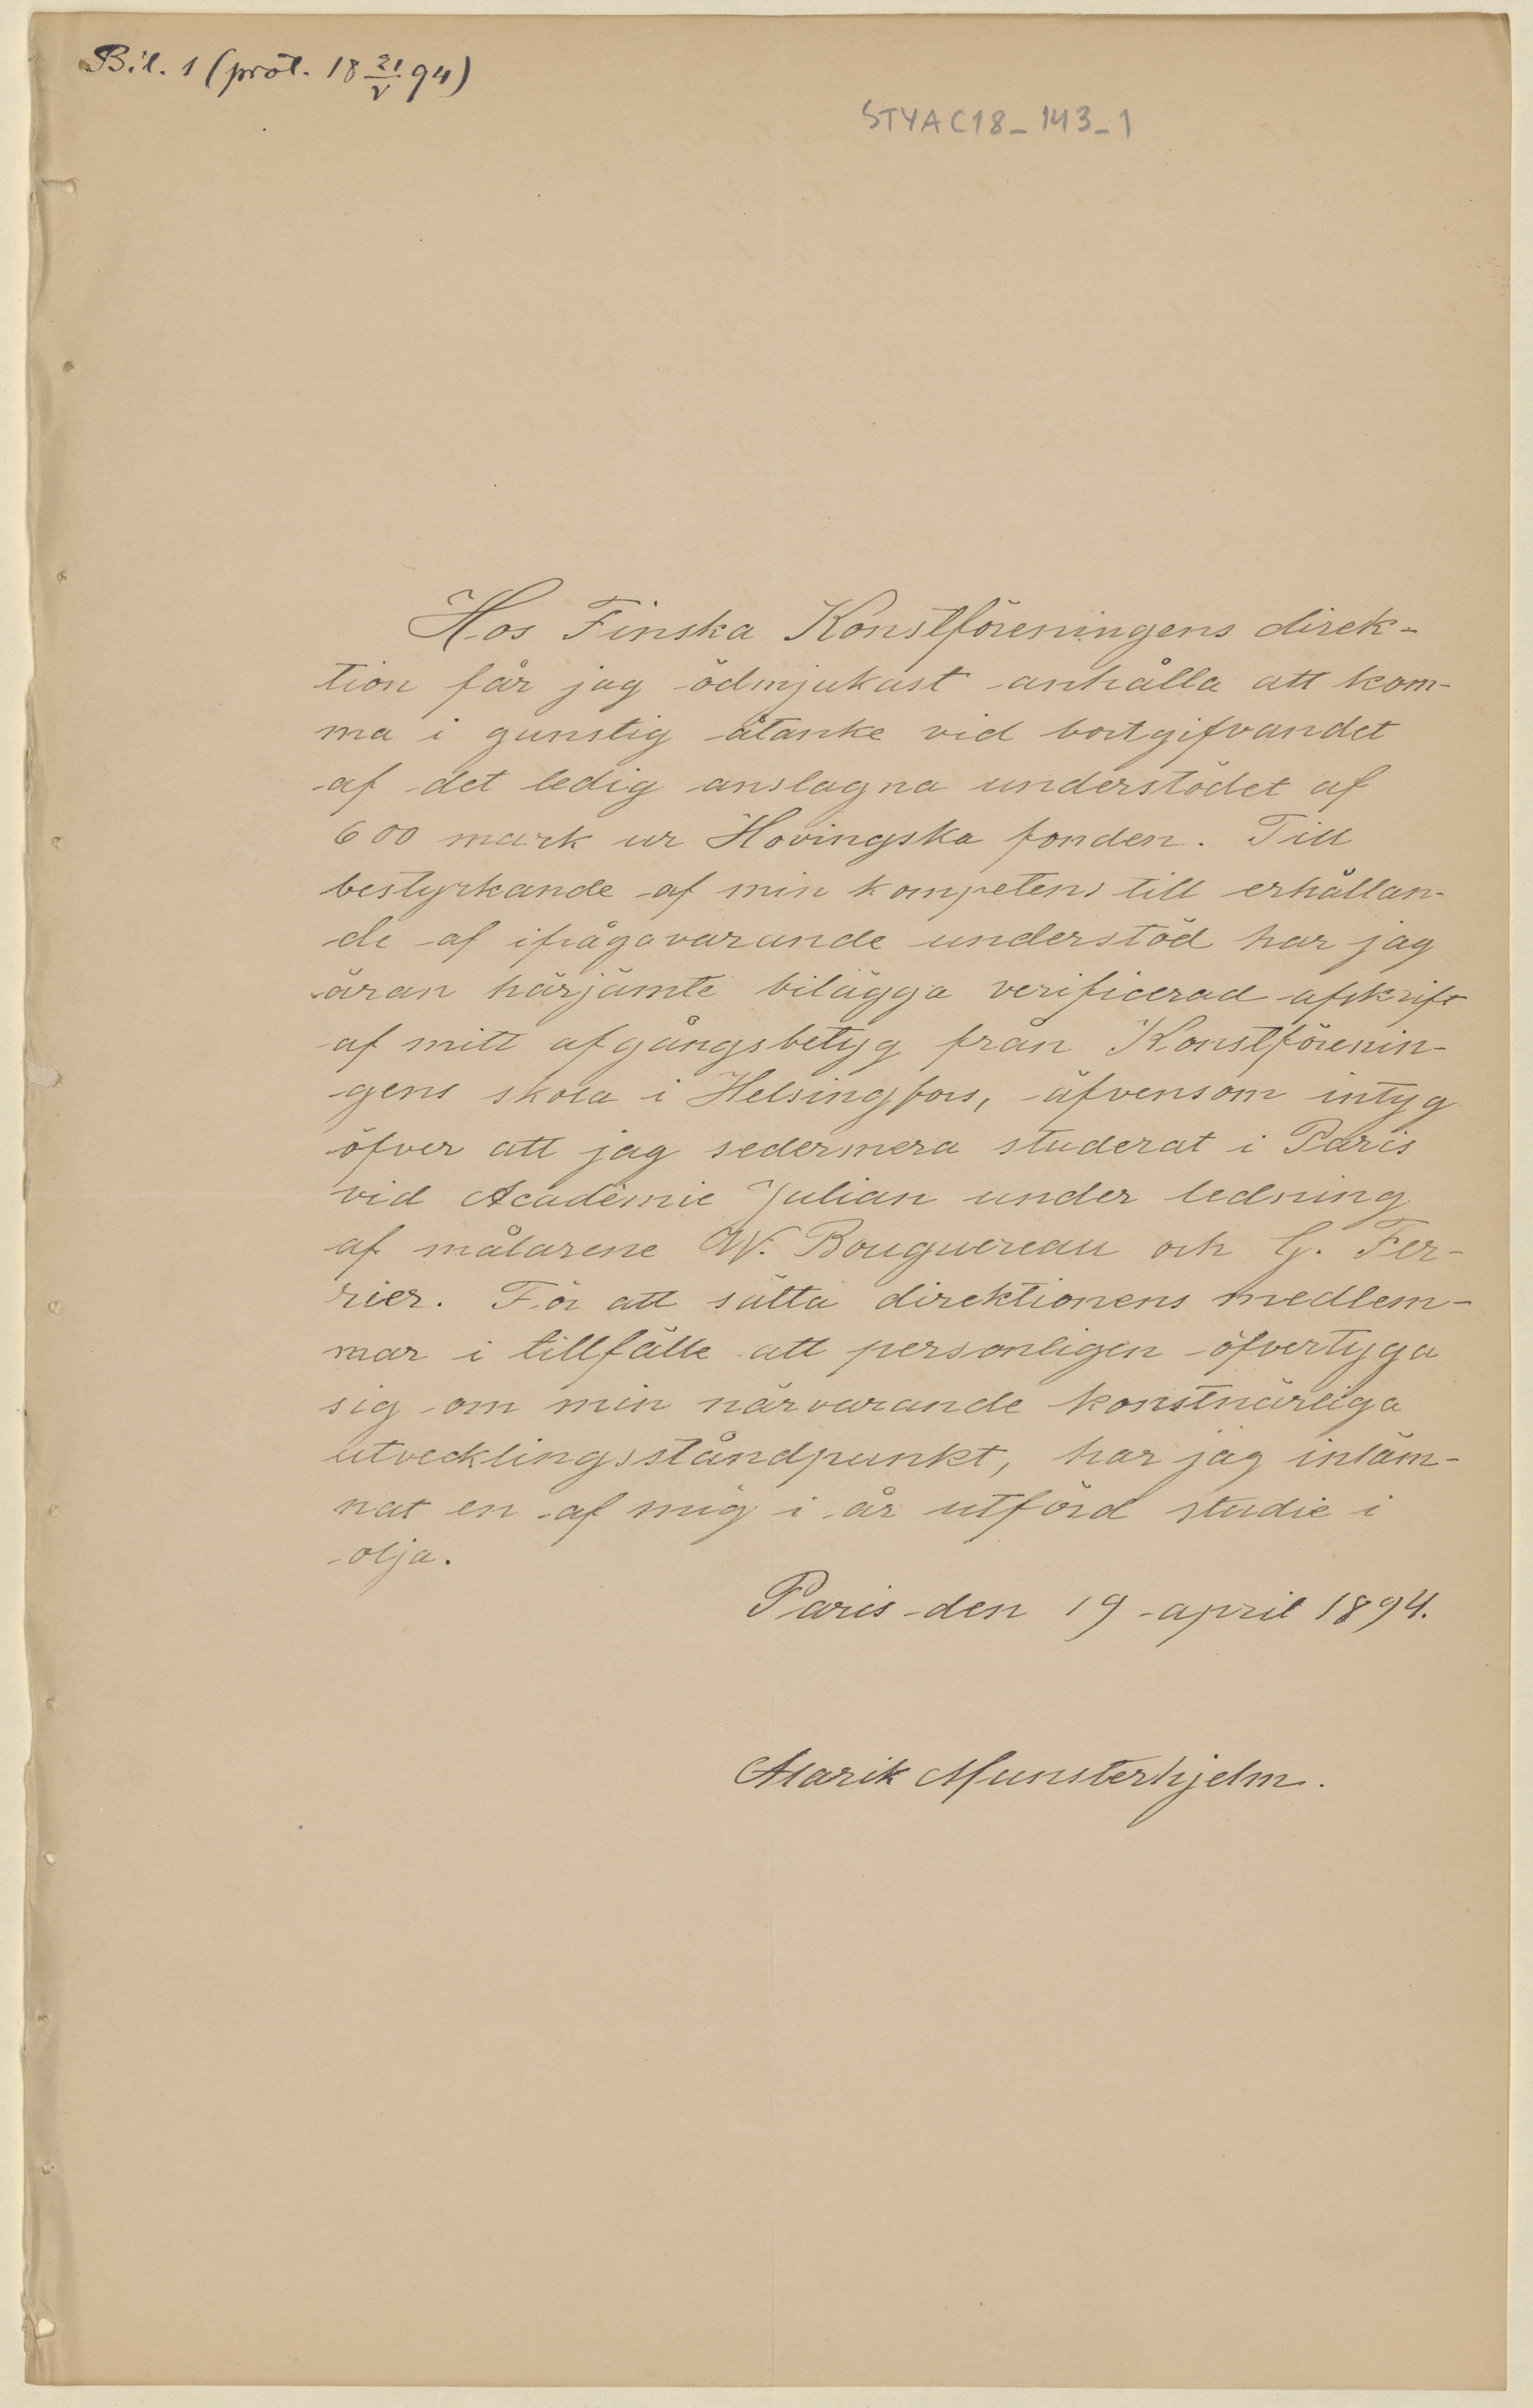 Bil. 1 (prot. 18 21/V 94)
STYA C18_143_1
Hos Finska Konstföreningens direk-
tion får jag ödmjukast anhålla att kom-
ma i gunstig åtanke vid bortgifvandet
af det ledig anslagna understödet af
600 mark ur Hovingska fonden. Till
bestyrkande af min kompetens till erhållan-
de af ifrågavarande understöd har jag
äran härjämte bilägga verificerad afskrift
af mitt afgångsbetyg från Konstförenin-
gens skola i Helsingfors, äfvensom intyg
öfver att jag sedermera studerat i Paris
vid Académie Julian under ledning
af målarene W. Bouguereau och G. Fer-
rier. För att sätta direktionens medlem-
mar i tillfälle att personligen öfvertyga
sig om min närvarande konstnärliga
utvecklingsståndpunkt, har jag inläm-
nat en af mig i år utförd studie i
olja.
Paris den 19 april 1894.
Alarik Munsterhjelm.